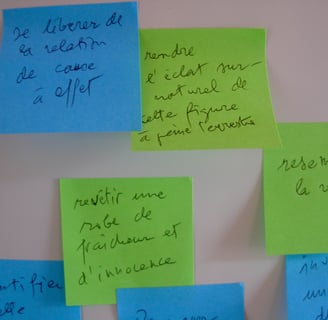 se libérer de
la relation
de cause
à effet
rendre
l'éclat sur-
naturel de
cette figure
à peine terrestre
revêtir une
robe de
fraîcheur et
d'innocence